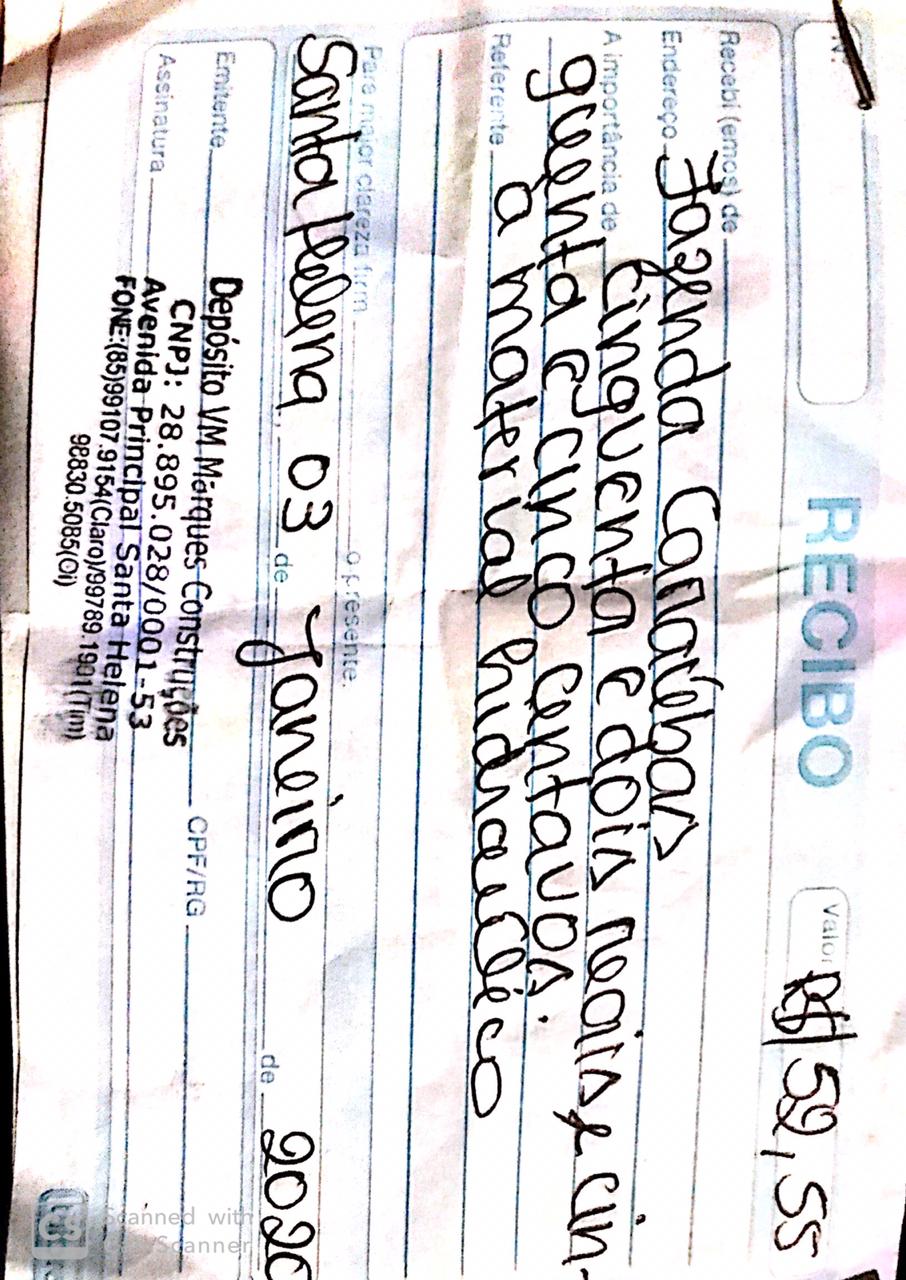 RECIBO
Nº
Valor R$ 52,55
Recebi (emos) de
Endereço Fazenda Carnaúbas
A importância de Cinquenta e dois reais e cin-
quenta e cinco centavos.
Referente a material hidraulico
Para maior clareza firm o presente.
Santa Helena, 03 de Janeiro de 2020
Emitente CPF/RG
Assinatura
Depósito VM Marques Construções
CNPJ: 28.895.028/0001-53
Avenida Principal Santa Helena
FONE:(85)99107.9154(Claro)/99789.1901(Tim)
98830.5085(Oi)
CS Scanned with
CamScanner